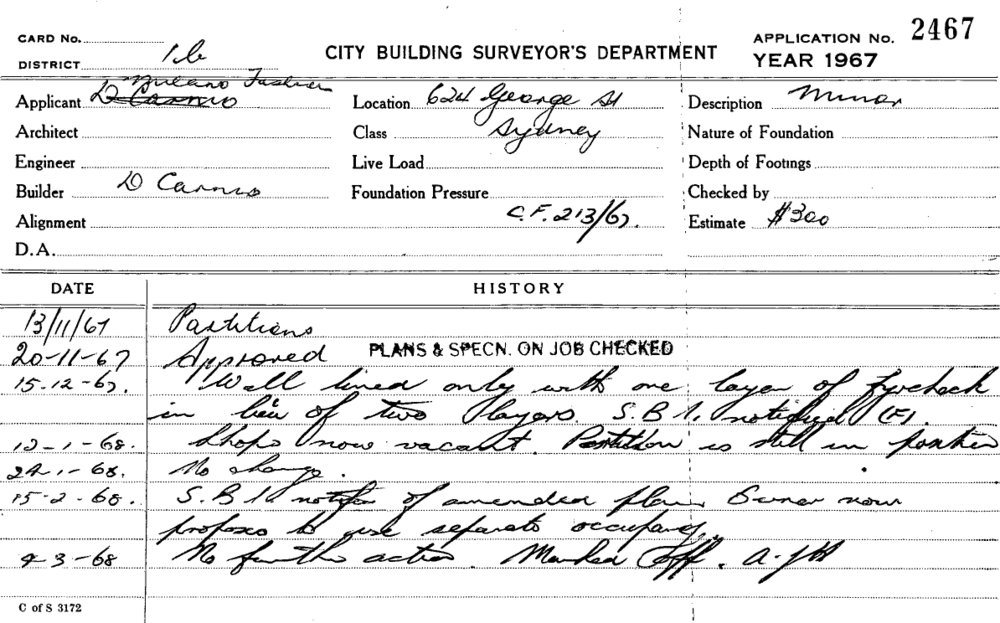 CARD No.
DISTRICT
CITY BUILDING SURVEYOR'S DEPARTMENT
APPLICATION No. 2467
YEAR 1967
Milano Fashion
Applicant D Carnio
Location 624 George St
Description Minor
Architect
Class Sydney
Nature of Foundation
Engineer
Live Load
Depth of Footings
Builder D Carnio
Foundation Pressure
Checked by
Alignment
C.F. 213/67.
Estimate $300
D.A.
DATE HISTORY
13/11/67 Partitions
20-11-67 Approved PLANS & SPECN. ON JOB CHECKED
15-12-67. Wall lined only with one layer of fyrcheck
in lieu of two layers. S.B.1. notified (F).
12-1-68. Shops now vacant. Partition is still in position
24-1-68. No change.
15-2-68. S.B.1. of amended plan Owner now
proposes to use separate occupancy.
4-3-68 No further action. Marked Off.
C of S 3172